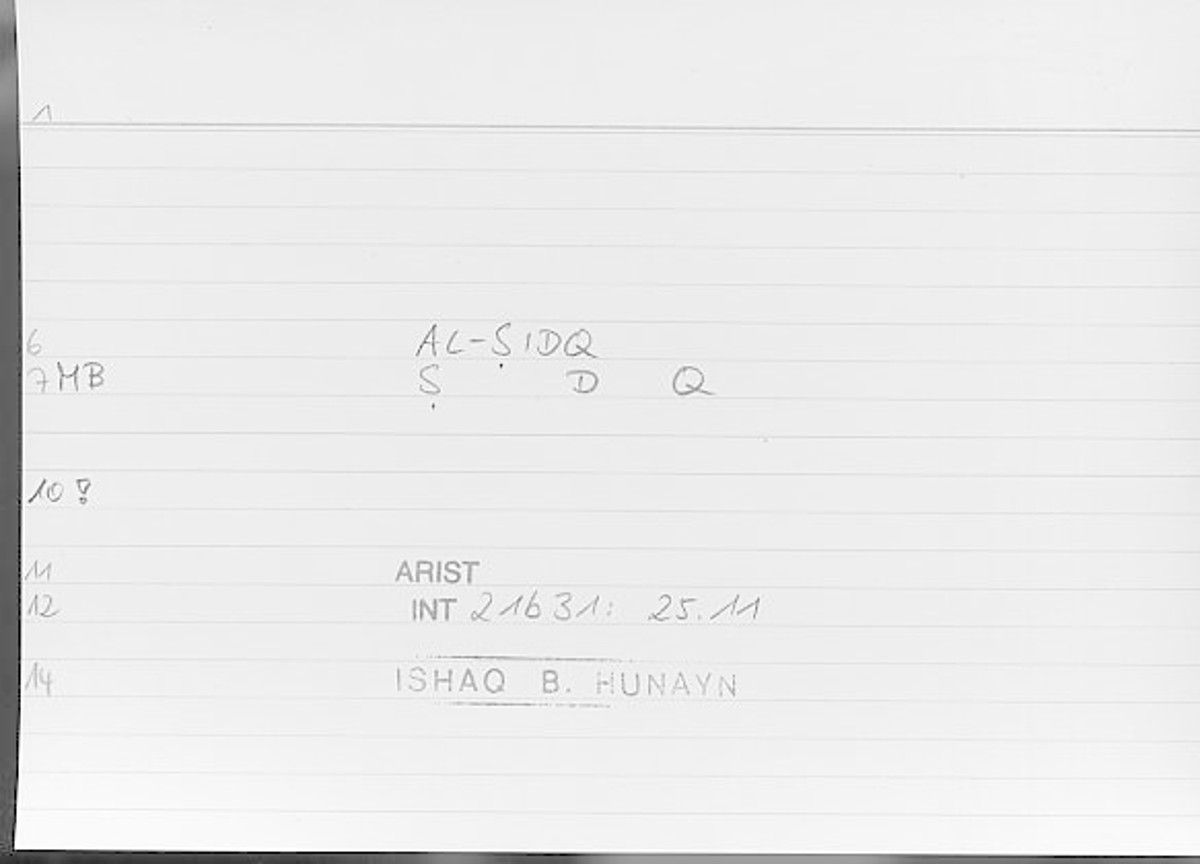 1
6 AL-ṢIDQ
7 MB Ṣ D Q
10 !
11 ARIST
12 INT 21b31: 25.11
14 ISHAQ B. HUNAYN